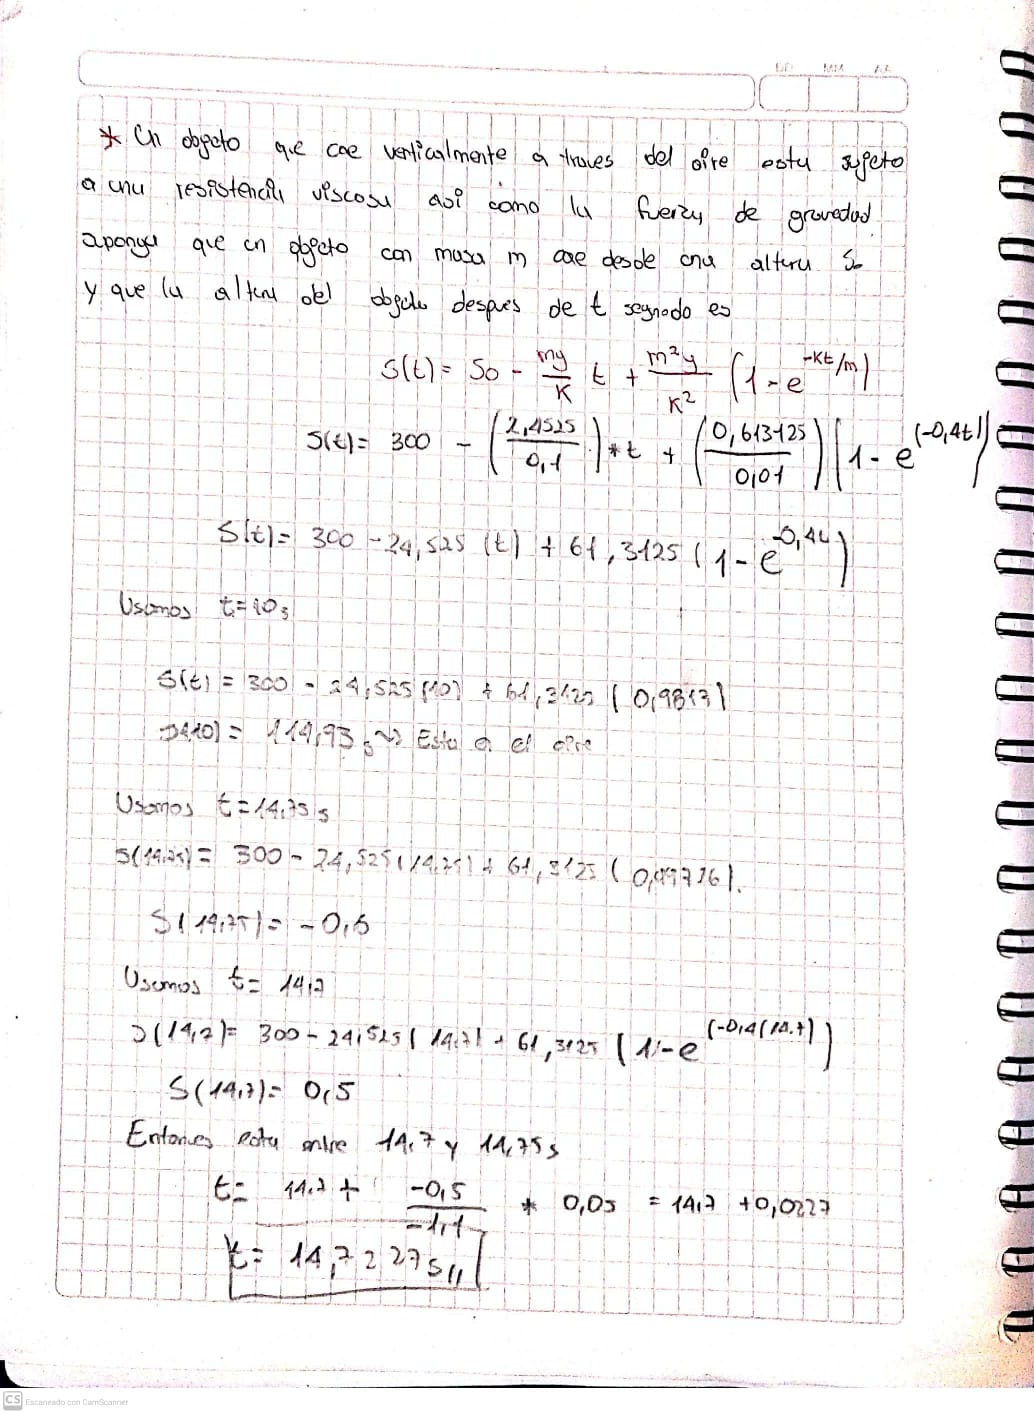 DD MM AA
* Un objeto que cae verticalmente a traves del aire esta sujeto
a una resistencia viscosa así como la fuerza de gravedad
suponga que un objeto con masa m cae desde una altura So
y que la altura del objeto despues de t segundo es
S(t) = So - mg/K t + m²g/K² (1 - e^(-Kt/m))
S(t) = 300 - (2,4525/0,1) * t + (0,613125/0,01) (1 - e^(-0,4t))
S(t) = 300 - 24,525 (t) + 61,3125 (1 - e^(-0,4t))
Usamos t=10s
S(t) = 300 - 24,525 (10) + 61,3125 (0,9817)
S(10) = 114,93 s ~> Esta a el aire
Usamos t=14,75 s
S(14,75) = 300 - 24,525 (14,75) + 61,3125 (0,99726).
S(14,75) = -0,5
Usamos t= 14,7
S(14,7) = 300 - 24,525 (14,7) + 61,3125 (1 - e^(-0,4(14.7)))
S(14,7) = 0,5
Entonces esta entre 14,7 y 14,75 s
t= 14.7 + (-0,5/-1,1) * 0,05 = 14,7 + 0,0227
t= 14,7227 s //
CS Escaneado con CamScanner